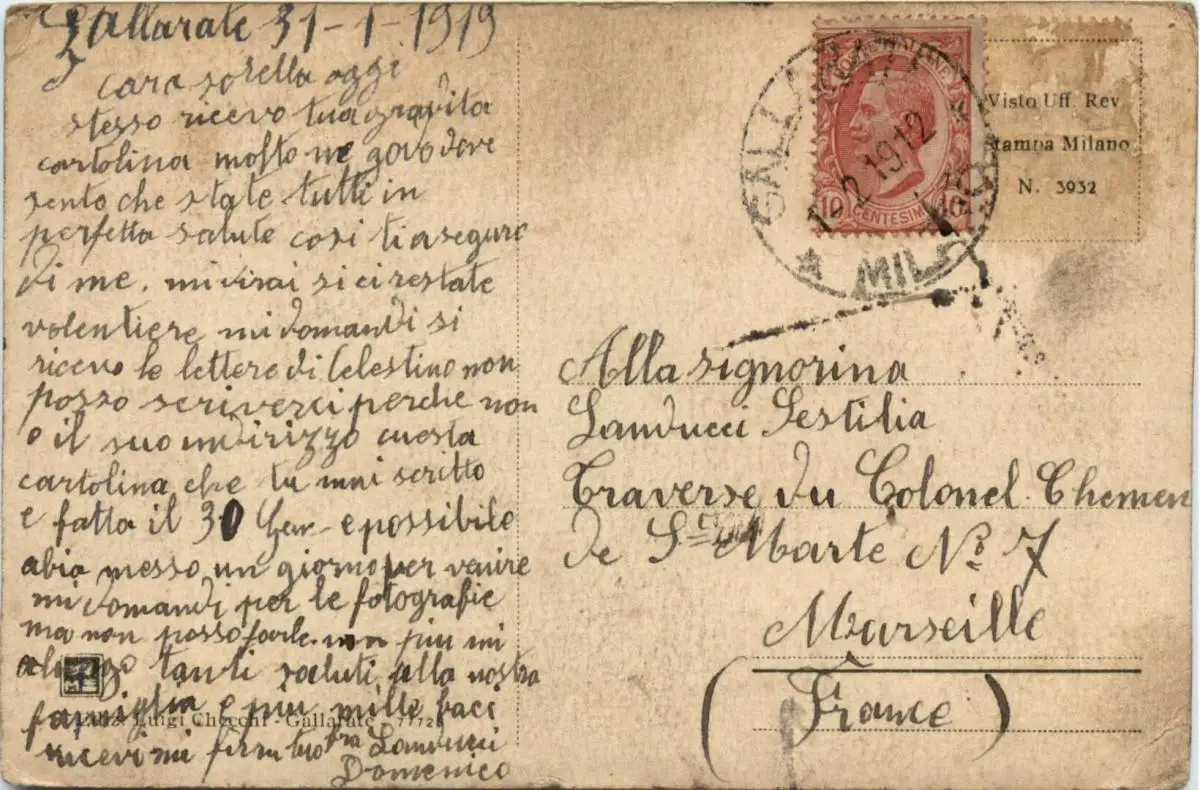 Gallarate 31-1-1919
cara sorella oggi
stesso ricevo tua gravita
cartolina molto ne godo dove
sento che state tutti in
perfetta salute cosi ti aseguro
di me. mi dirai si ci restate
volentiere mi domandi si
ricevo le lettere di Celestino non
posso scriverci perche non
o il suo indirizzo cuesta
cartolina che tu mai scritto
e fatta il 30 Gen e possibile
abia messo un giorno per venire
mi domandi per le fotografie
ma non posso farle. non piu mi
tanti saluti alla nostra
famiglia e piu mille baci
ricevi mi firmo tuo fra Landucci
Domenico
Luigi Checchi - Gallarate
GALLARATE
1 - 2 19.12
MILANO
POSTE ITALIANE
10 CENTESIMI 10
Visto Uff. Rev
Stampa Milano
N. 3932
Alla signorina
Landucci Sestilia
Traverse du Colonel. Chemen
de Ste Marte No 7
Marseille
(France)